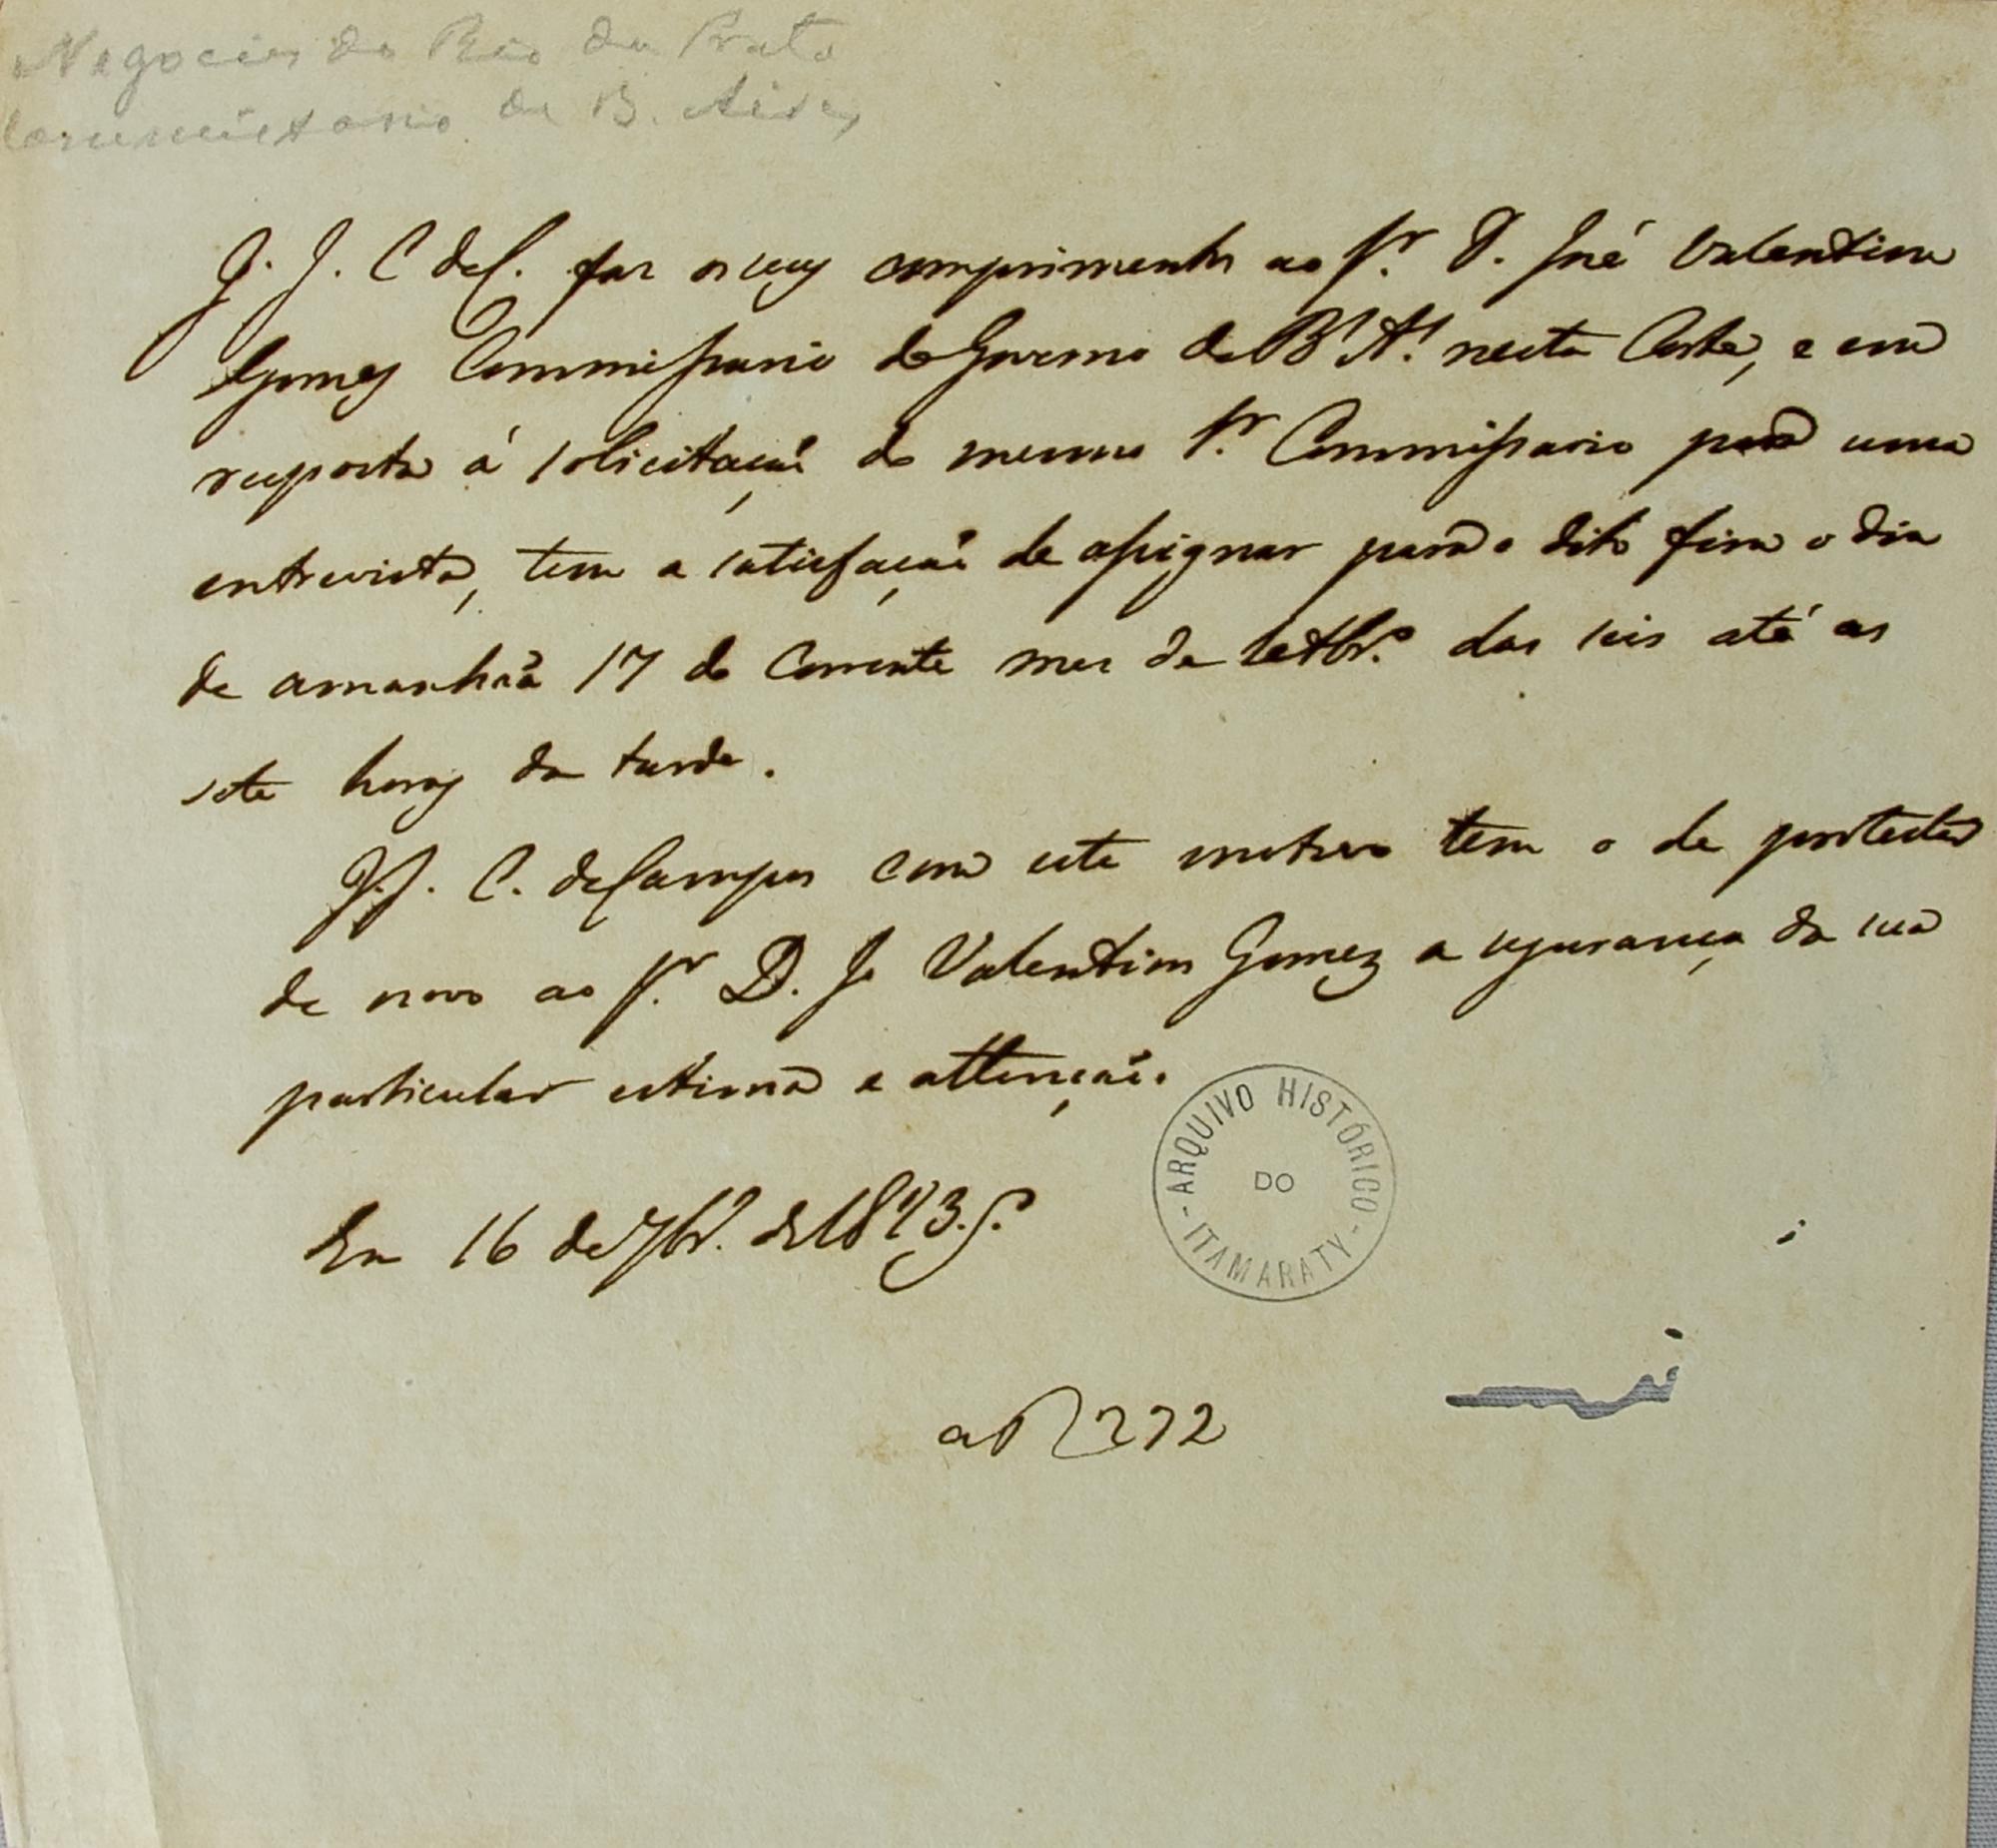 Negocios do Rio da Prata
Commissario de B. Aires
J. J. C de C. faz os seus comprimentos ao Sr. D. José Valentim
Gomez Commissario do Governo de Bs As. nesta Corte, e em
resposta á solicitação do mesmo Sr. Commissario para uma
entrevista, tem a satisfação de assignar para o dito fim o dia
de amanhãa 17 do Corrente mez de Setbro. das seis até as
sete horas da tarde.
J. J. C. de Campos com este motivo tem o de protestar
de novo ao Sr. D. Je Valentim Gomez a segurança da sua
particular estima e attenção.
Em 16 de 7bro. de 1823.
ARQUIVO HISTÓRICO
DO
ITAMARATY
272